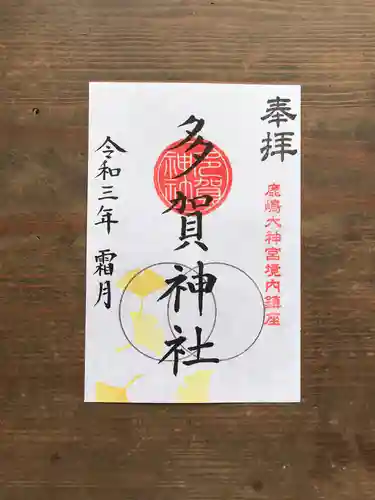 奉拝
鹿嶋大神宮境内鎮座
多賀神社
令和三年 霜月